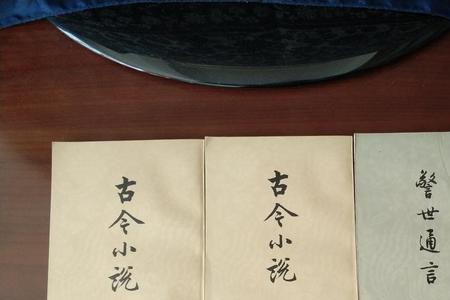 古今小说
古今小说
警世通言